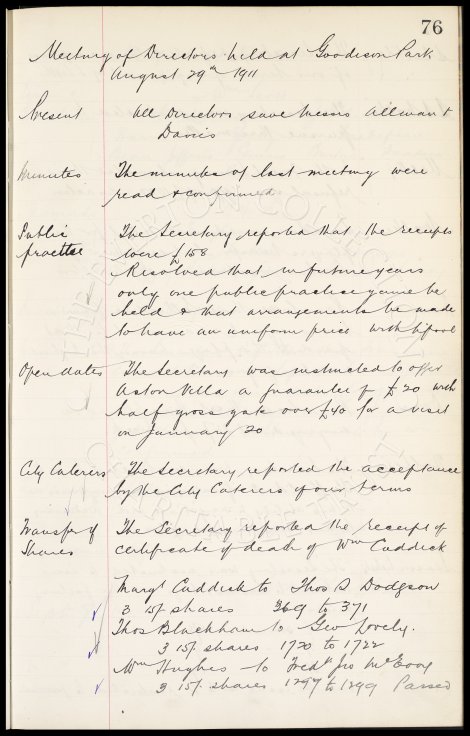 76
Meeting of Directors held at Goodison Park
August 29th 1911
Present All Directors save Messrs Allman &
Davies
Minutes The minutes of last meeting were
read & confirmed
Public The Secretary reported that the receipts
practice were £158
Resolved that in future years
only one public practice game be
held & that arrangements be made
to have an uniform price with L'pool
Open dates The Secretary was instructed to offer
Aston Villa a guarantee of £20 with
half gross gate over £40 for a visit
on January 20
City Caterers The Secretary reported the acceptance
by the City Caterers of our terms
Transfer of The Secretary reported the receipt of
Shares certificate of death of Wm Cuddick
Margt Cuddick to Thos B Dodgson
3 15/- shares 369 to 371
Thos Blackham to Geo Lovely.
3 15/- shares 1720 to 1722
Wm Hughes to Fredk Jno McEvoy
3 15/- shares 1297 to 1299 Passed